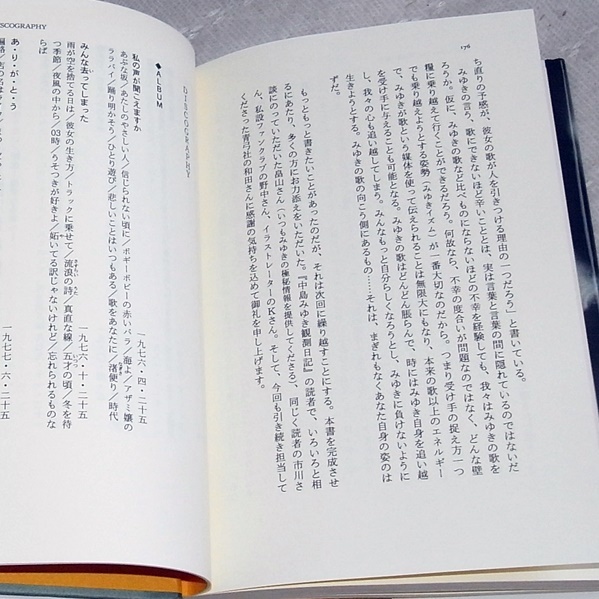 176
ち直りの予感が、彼女の歌が人を引きつける理由の一つだろう」と書いている。
みゆきの言う、歌にできないほど辛いこととは、実は言葉と言葉の間に隠れているのではないだ
ろうか。仮に、みゆきの歌など比べものにならないほどの不幸を経験しても、我々はみゆきの歌を
糧に乗り越えて行くことができるだろう。何故なら、不幸の度合いが問題なのではなく、どんな壁
でも乗り越えようとする姿勢（みゆきイズム）が一番大切なのだから。つまり受け手の捉え方一つ
で、みゆきが歌という媒体を使って伝えられることは無限大にもなり、本来の歌以上のエネルギー
を受け手に与えることも可能となる。みゆきの歌はどんどん脹らんで、時にはみゆき自身を追い越
し、我々の心も追い越してしまう。みんなもっと自分らしくなろうとし、みゆきに負けないように
生きようとする。みゆきの歌の向こう側にあるもの……それは、まぎれもなくあなた自身の姿のは
ずだ。
もっともっと書きたいことがあったのだが、それは次回に繰り越すことにする。本書を完成させ
るにあたり、多くの方にお力添えをいただいた。『中島みゆき観測日記』の読者で、いろいろと相
談にのっていただいた畠山さん（いつもみゆきの極秘情報を提供してくださる）、同じく読者の市川さ
ん、私設ファンクラブの野中さん、イラストレーターのKさん。そして、今回も引き続き担当して
くださった青弓社の和田さんに感謝の気持ちを込めて御礼を申し上げます。
SCOGRAPHY
DISCOGRAPHY
◆ALBUM
私の声が聞こえますか 一九七六・四・二十五
あぶな坂／あたしのやさしい人／信じられない頃に／ボギーボビーの赤いバラ／海よ／アザミ嬢の
ララバイ／踊り明かそう／ひとり遊び／悲しいことはいつもある／歌をあなたに／渚便り／時代
みんな去ってしまった 一九七六・十・二十五
雨が空を捨てる日は／彼女の生き方／トラックに乗せて／流浪の詩／真直な線／五才の頃／冬を待
つ季節／夜風の中から／03時／うそつきが好きよ／妬いてる訳じゃないけれど／忘れられるものな
らば
あ・り・が・と・う 一九七七・六・二十五